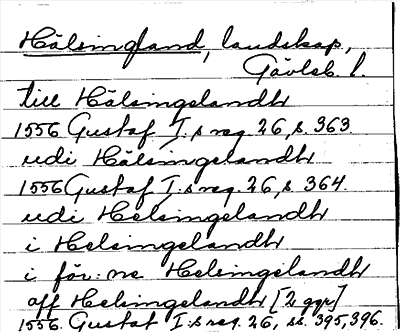 Hälsingland, landskap,
Gävleb. l.
till Hälsingelandh
1556 Gustaf I:s reg. 26, s. 363.
udi Hälsingelandh
1556 Gustaf I:s reg. 26, s. 364.
udi Helsingelandh
i Helsingelandh
i för:ne Helsingelandh
aff Helsingelandh [2 ggr]
1556. Gustaf I:s reg. 26, ss. 395, 396.